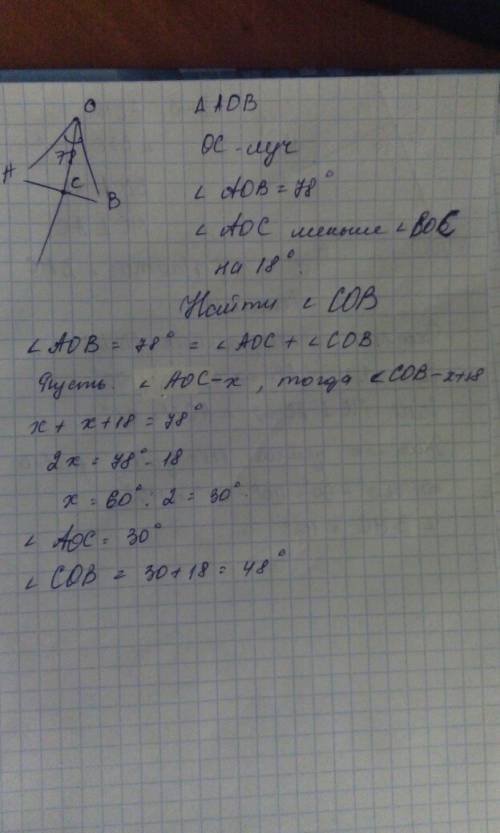 O
A
78
C
B
Δ AOB
OC - луч
∠ AOB = 78°
∠ AOC меньше ∠BOC
на 18°.
Найти ∠ COB
∠ AOB = 78° = ∠ AOC + ∠ COB
Пусть ∠ AOC - x, тогда ∠COB - x+18
x + x + 18 = 78°
2x = 78° - 18
x = 60° : 2 = 30°.
∠ AOC = 30°
∠ COB = 30 + 18 = 48°